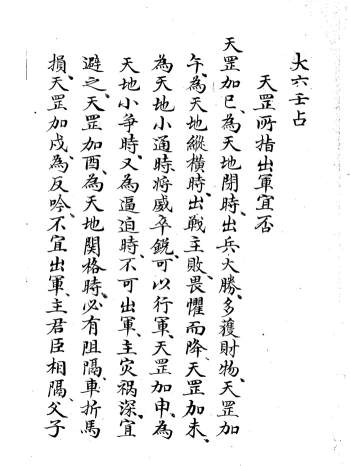 大六壬占
天罡所指出軍宜否
天罡加巳、為天地閉時、出兵大勝、多獲財物、天罡加
午、為天地縱橫時、出戰主敗、畏懼而降、天罡加未、
為天地小通時、將威卒銳、可以行軍、天罡加申、為
天地小爭時、又為逼迫時、不可出軍、主灾禍深、宜
避之、天罡加酉、為天地関格時、必有阻隔、車折馬
損、天罡加戌、為反吟、不宜出軍、主君臣相隔、父子